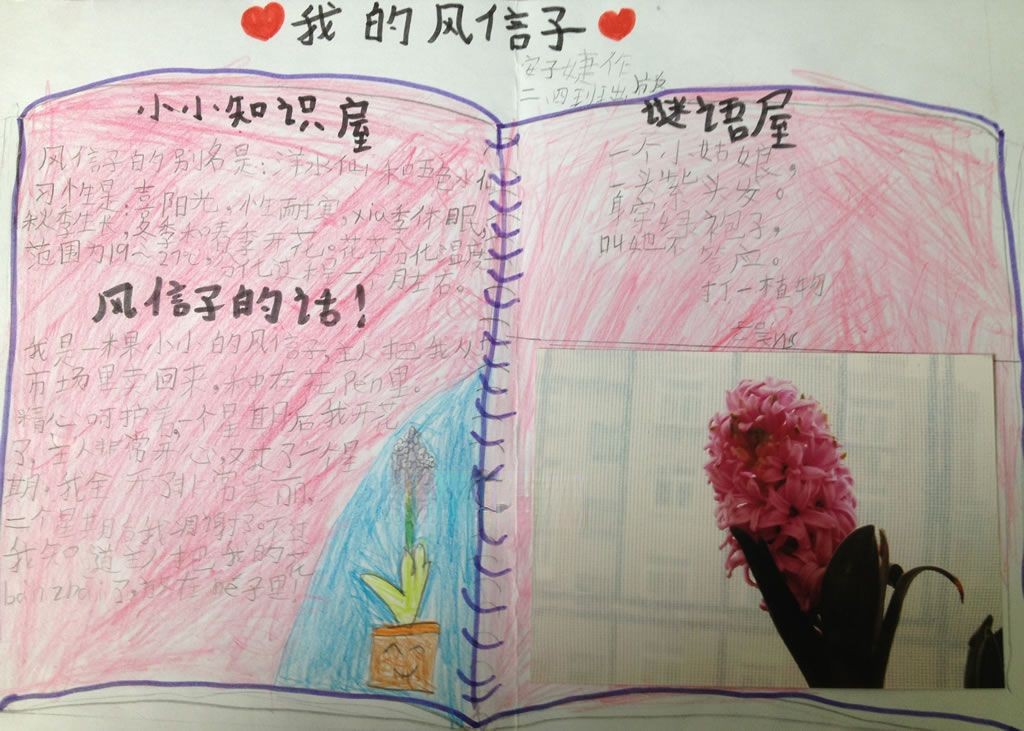 我的风信子
安子婕作
二、四班出版
小小知识屋
风信子的别名是：洋水仙和五色水仙
习性是：喜阳光，性耐寒，xiu季休眠，
秋季生长，夏季和春季开花。花芽分化温度
范围为19～27℃，分化过程一个月左右。
风信子的话！
我是一棵小小的风信子，主人把我从
市场里卖回来，种在花Pen里。
精心呵护着，一个星期后我开花
了，主人非常开心，又过了一个星
期，我全开了非常美丽，
二个星期后我凋谢了。不过
我知道主人把我的花
ban znai了，放在pe子里
谜语屋
一个小姑娘，
一头紫头发。
身穿绿袍子，
叫她不答应。
打一植物